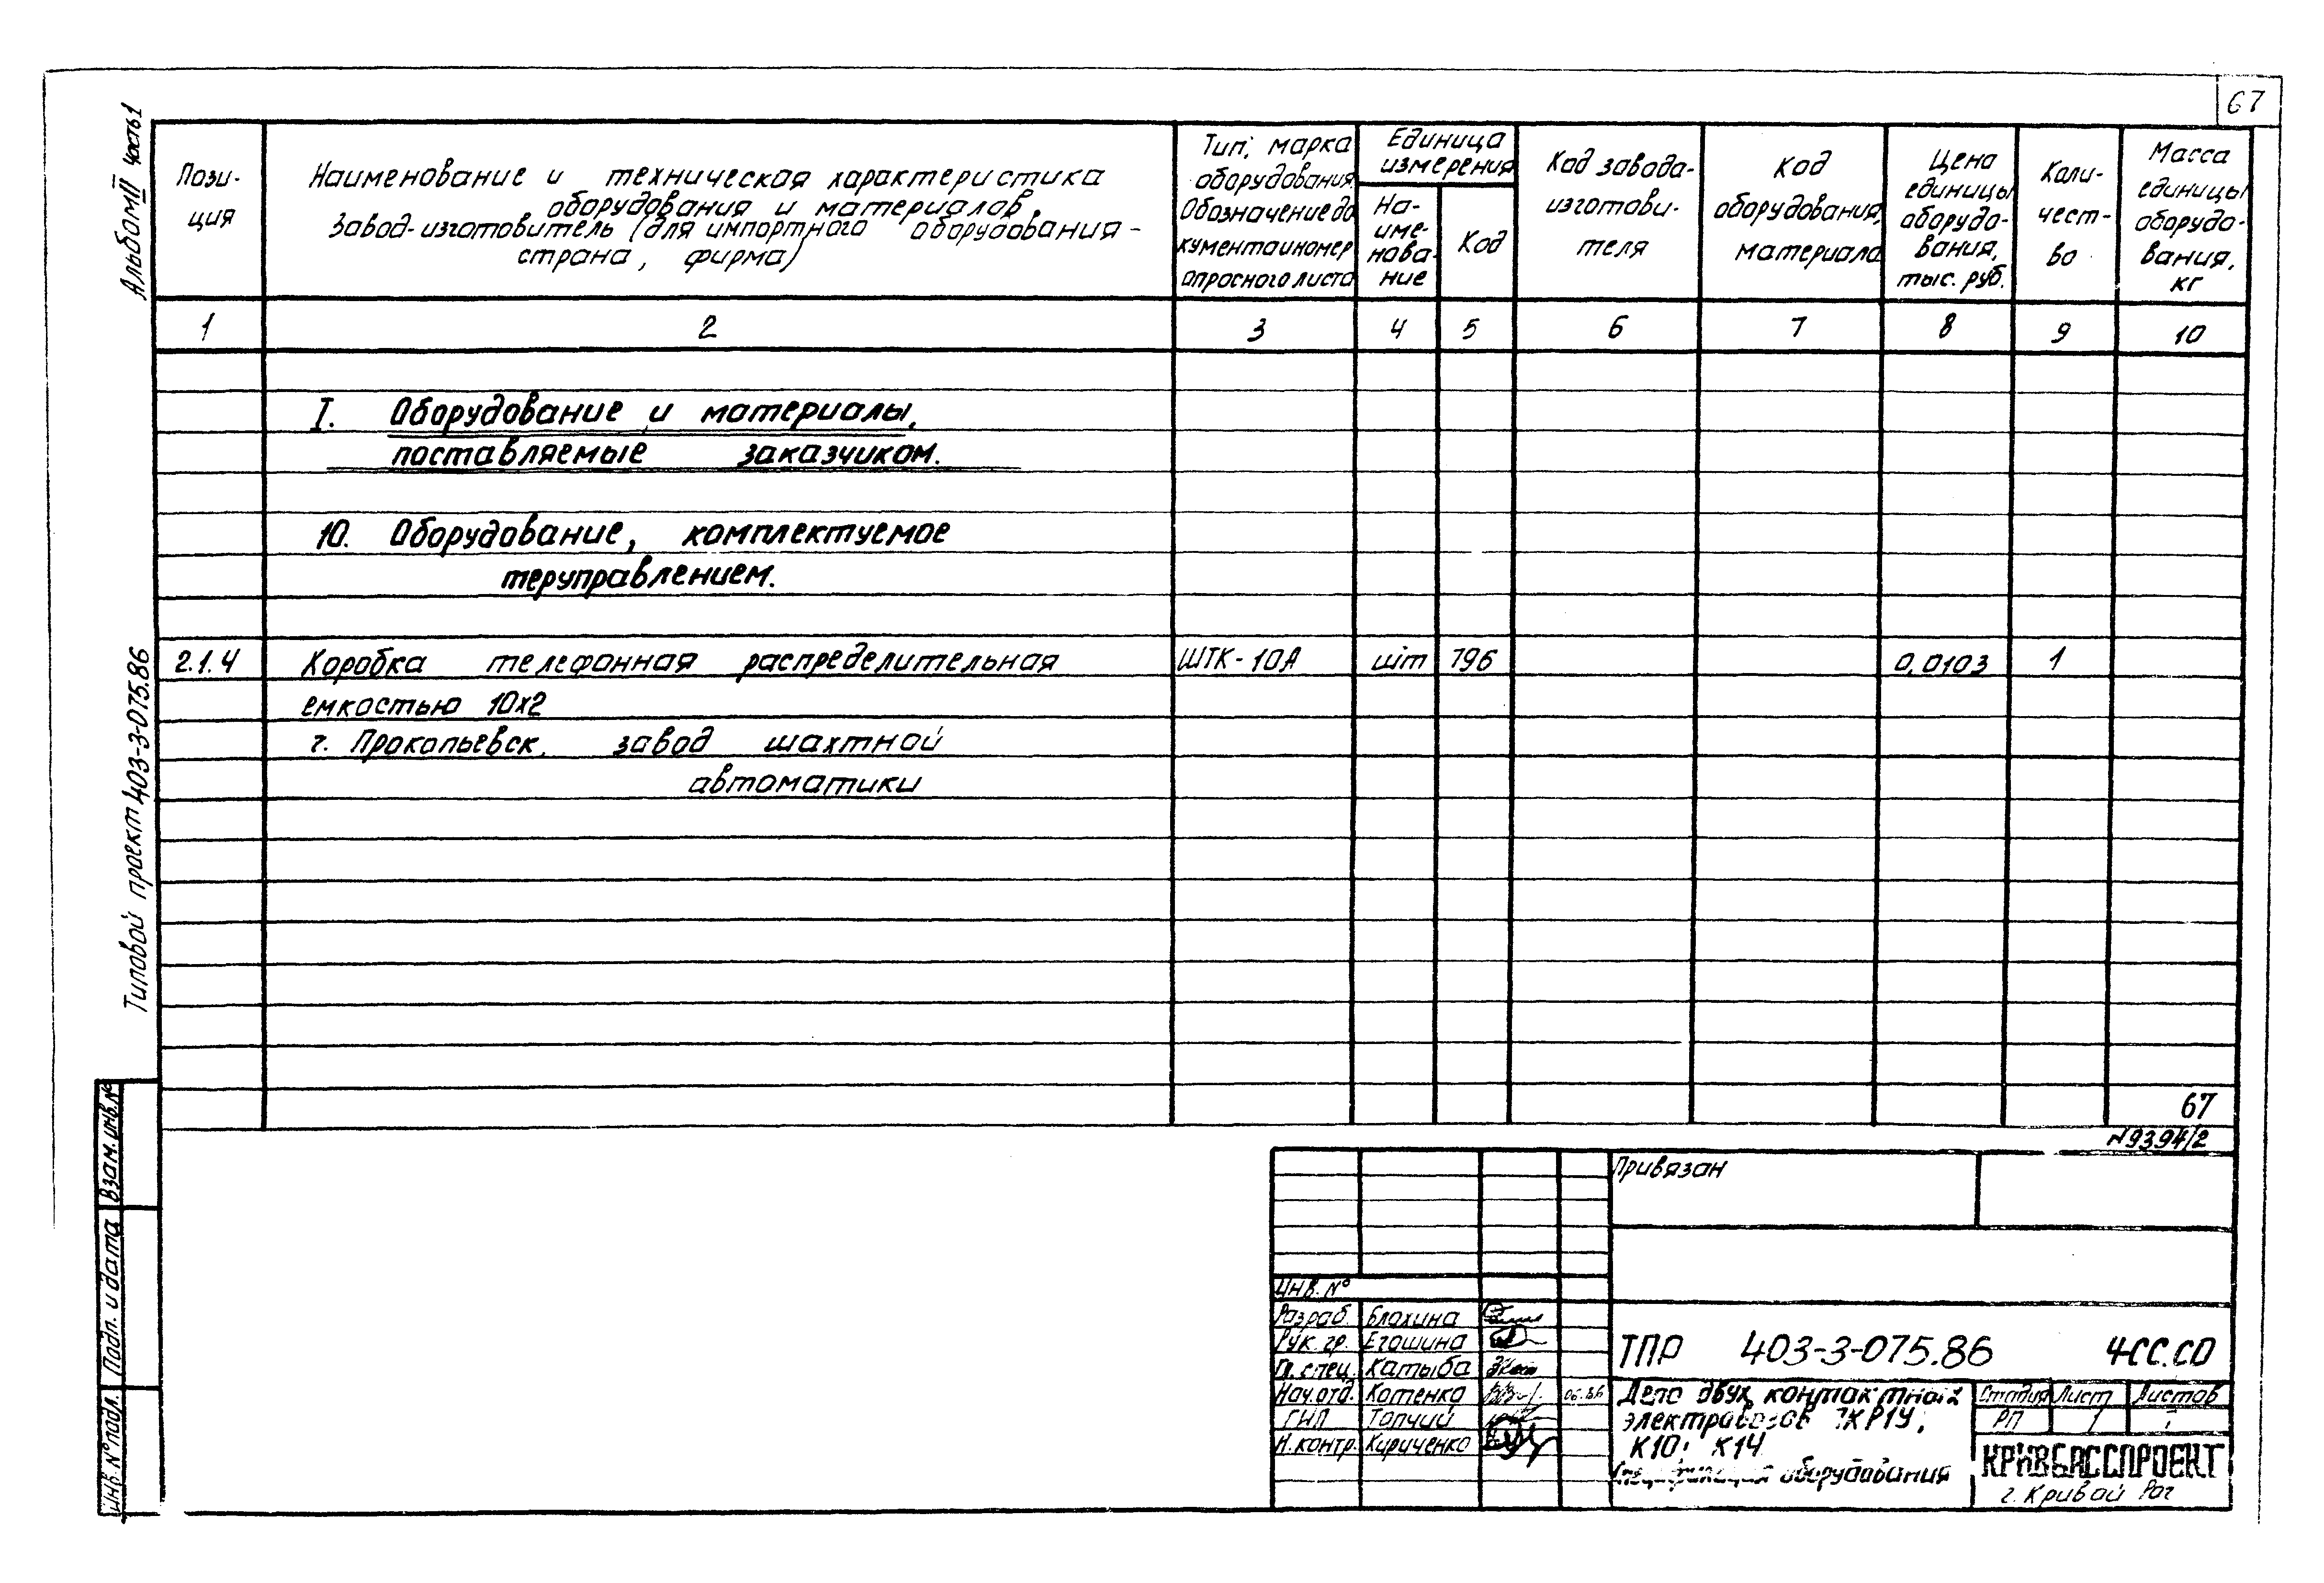 67
Альбом II часть 1
Типовой проект 403-3-075.86
Взам. инв. №
Подп. и дата
Инв. № подл.
Пози-
ция
Наименование и техническая характеристика
оборудования и материалов
Завод-изготовитель (для импортного оборудования -
страна, фирма)
Тип, марка
оборудования.
Обозначение до
кумента и номер
опросного листа
Единица
измерения
На-
име-
нова-
ние
Код
Код завода-
изготови-
теля
Код
оборудования,
материала
Цена
единицы
оборудо-
вания,
тыс. руб.
Коли-
чест-
во
Масса
единицы
оборудо-
вания,
кг
1 2 3 4 5 6 7 8 9 10
I. Оборудование и материалы,
поставляемые заказчиком.
10. Оборудование, комплектуемое
теруправлением.
2.1.4 Коробка телефонная распределительная ШТК-10А шт 796 0,0103 1
емкостью 10х2
г. Прокопьевск. завод шахтной
автоматики
67
N9394/2
Привязан
Инв. №
Разраб. Блохина
Рук. гр. Егошина
Гл. спец. Катыба
Нач. отд. Котенко 06.86
ГИП Топчий
Н. контр. Кириченко
ТПР 403-3-075.86 4СС.СО
Депо двух контактных
электровозов 7КР1У;
К10; К14
Спецификация оборудования
Стадия Лист Листов
РП 1
КРИВБАССПРОЕКТ
г. Кривой Рог